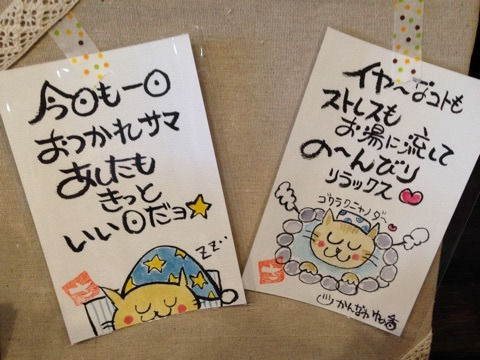 今日も一日
おつかれサマ
あしたも
きっと
いい日だョ
ZZ..
イヤ〜なコトも
ストレスも
お湯に流して
の〜んびり
リラックス
ゴクラクニャノダ〜